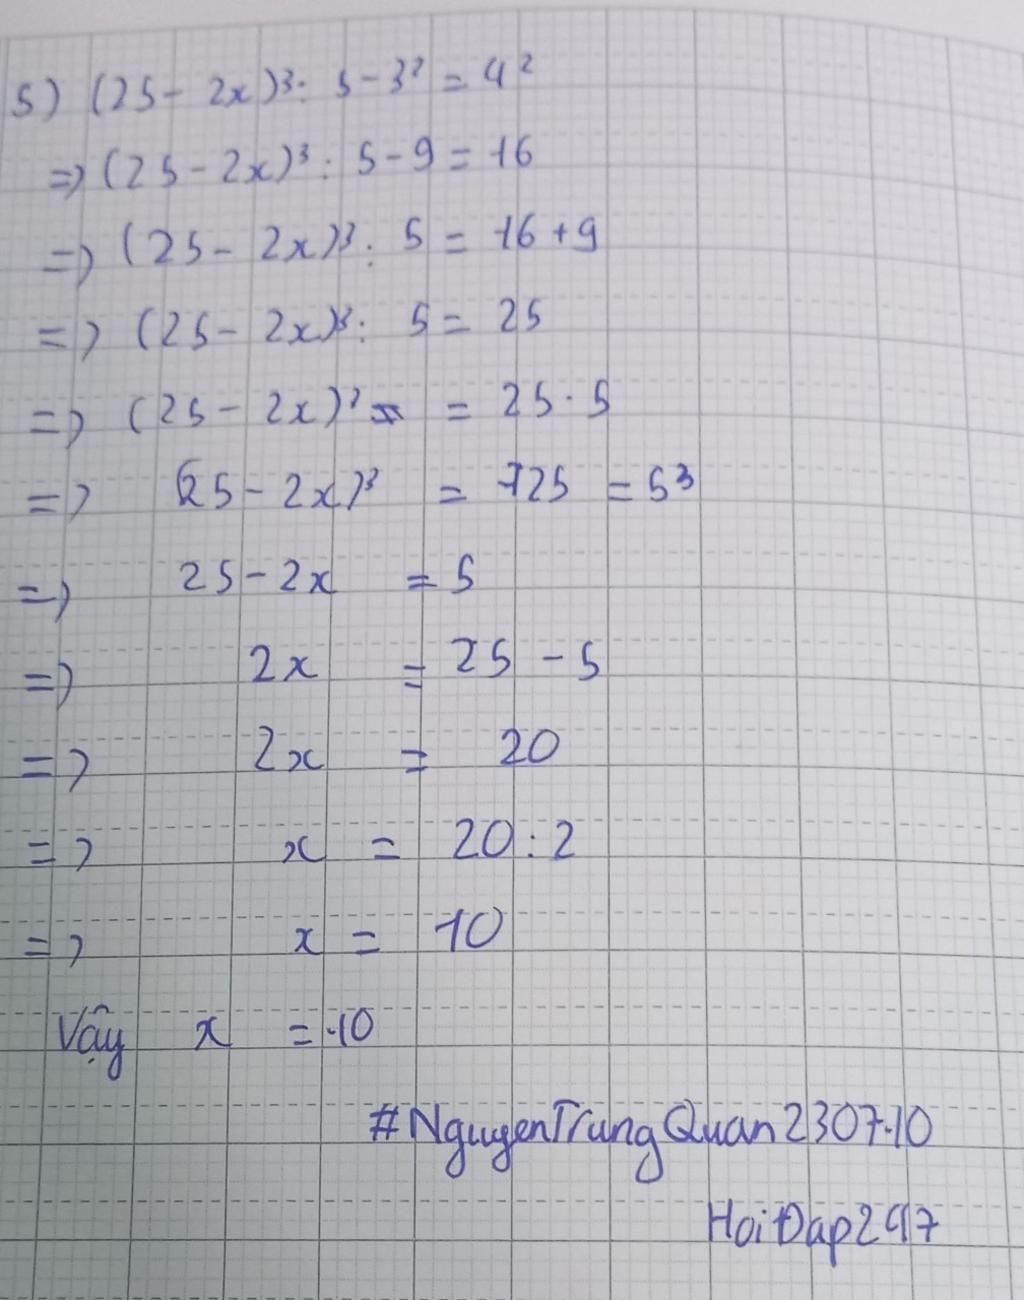 5) (25 - 2x)³ : 5 - 3² = 4²
=> (25 - 2x)³ : 5 - 9 = 16
=> (25 - 2x)³ : 5 = 16 + 9
=> (25 - 2x)³ : 5 = 25
=> (25 - 2x)³ = 25 . 5
=> (25 - 2x)³ = 125 = 5³
=> 25 - 2x = 5
=> 2x = 25 - 5
=> 2x = 20
=> x = 20 : 2
=> x = 10
Vậy x = 10
#NguyenTrungQuan230710
HoiĐap247